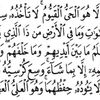 لَّا هُوَ الْحَيُّ الْقَيُّومُ لَا تَأْخُذُهُ
وَمَا فِي الْأَرْضِ مَن ذَا الَّذِي
مَا بَيْنَ أَيْدِيهِمْ وَمَا خَلْفَهُمْ
إِلَّا بِمَا شَاءَ وَسِعَ كُرْسِيُّهُ
يَئُودُهُ حِفْظُهُمَا وَهُوَ الْعَلِيُّ